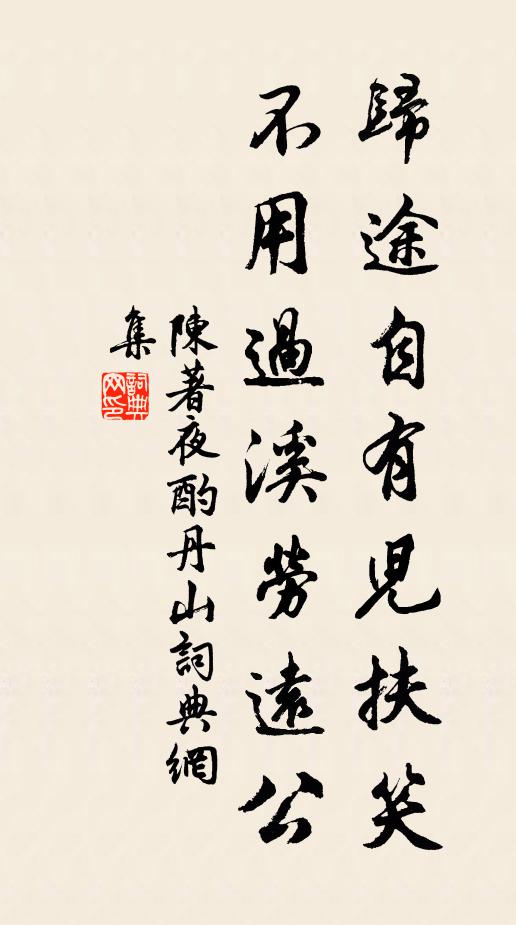 歸途自有兒扶笑
不用過溪勞遠公
陳著夜酌丹山詞典網
集
詞典
网印